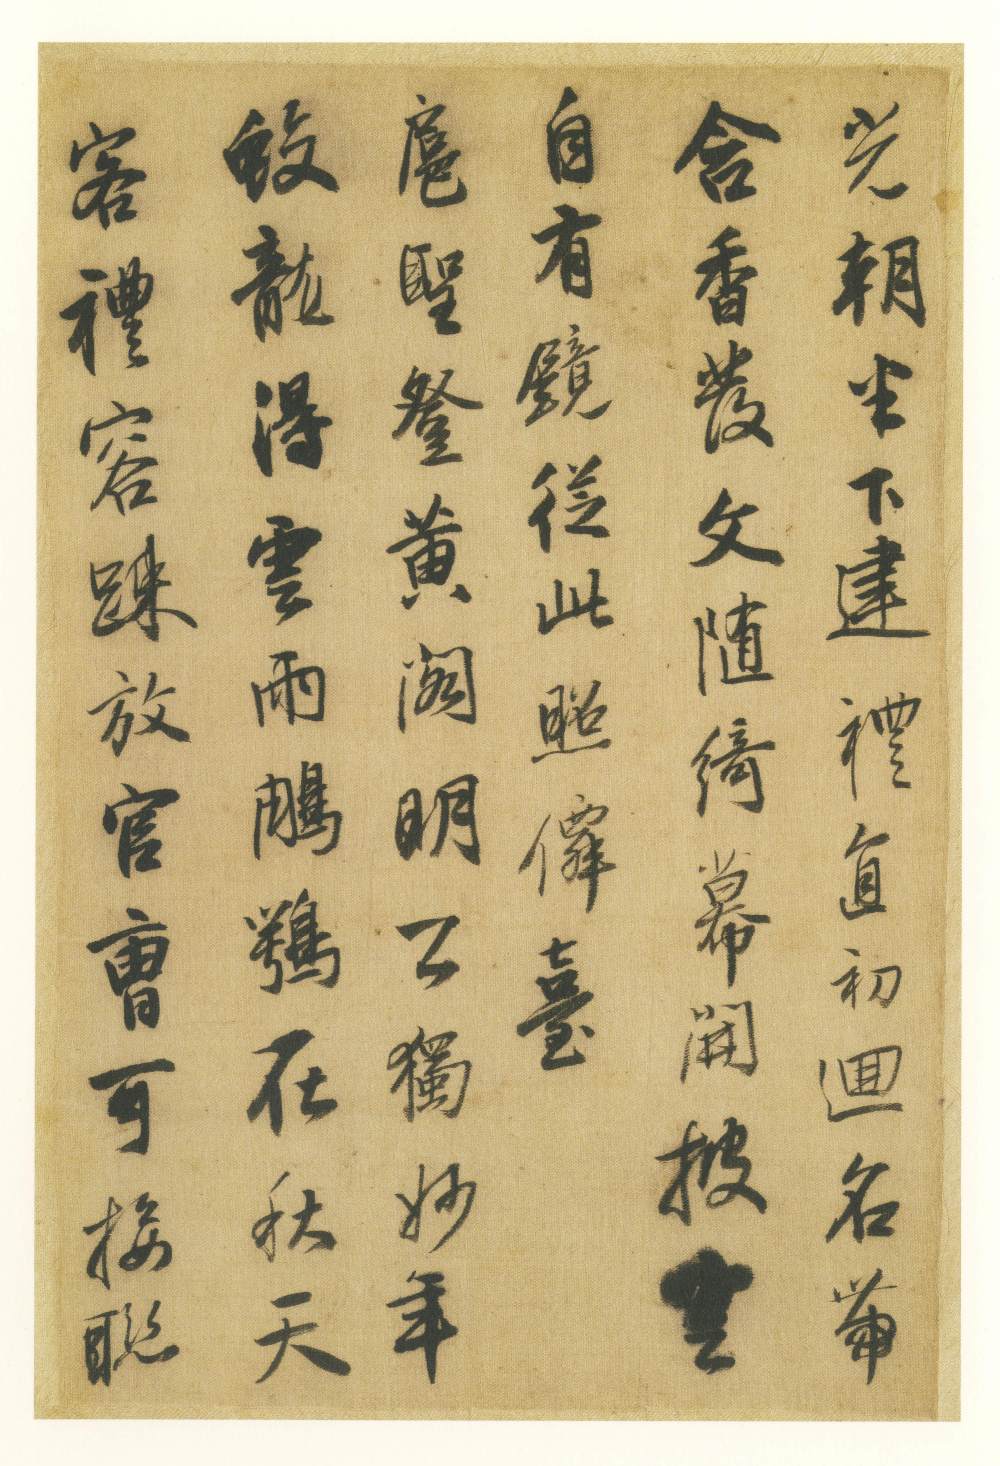 光朝坐下建禮直初迴名帶
含香發文随綺幕開披雲
自有鏡從此照僊臺
扈聖登黄閣明公獨妙年
蛟龍得雲雨鵰鶚在秋天
客禮容踈放官曹可接聯